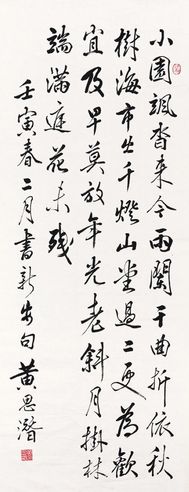 小園颯沓來今雨闌干曲折依秋
樹海市出千燈山堂過二更為歡
宜及早莫放年光老斜月掛林
端滿庭花未殘
壬寅春二月書新句 黃思潛